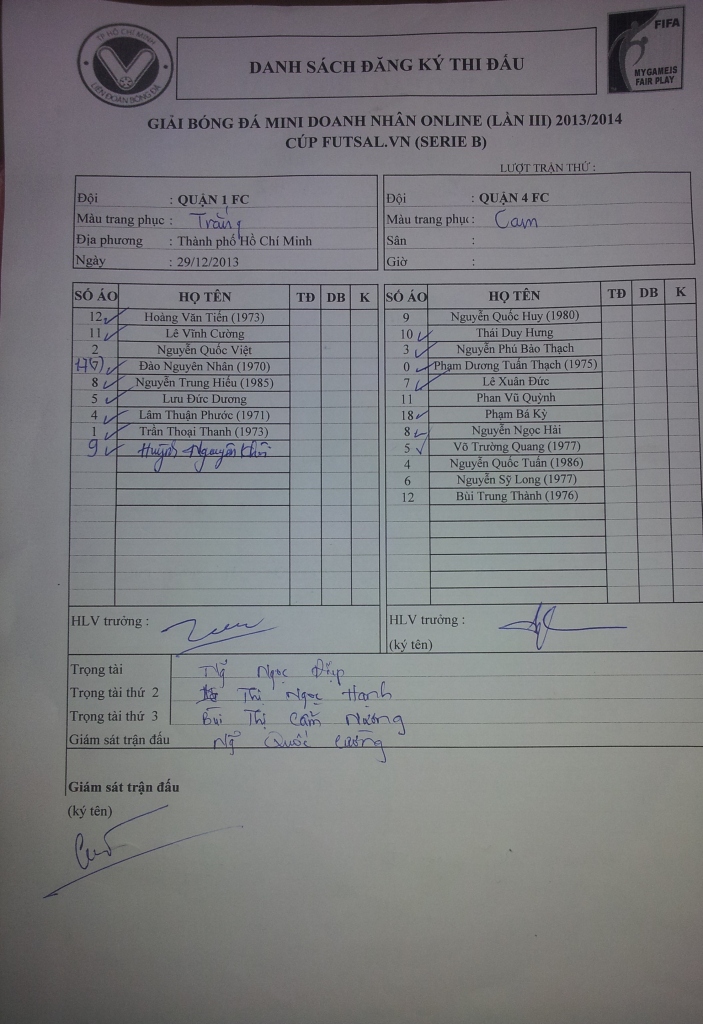 TP HỒ CHÍ MINH
LIÊN ĐOÀN BÓNG ĐÁ
DANH SÁCH ĐĂNG KÝ THI ĐẤU
FIFA
MY GAME IS
FAIR PLAY
GIẢI BÓNG ĐÁ MINI DOANH NHÂN ONLINE (LẦN III) 2013/2014
CÚP FUTSAL.VN (SERIE B)
LƯỢT TRẬN THỨ :
Đội : QUẬN 1 FC
Màu trang phục : Trắng
Địa phương : Thành phố Hồ Chí Minh
Ngày : 29/12/2013
Đội : QUẬN 4 FC
Màu trang phục : Cam
Sân :
Giờ :
SỐ ÁO HỌ TÊN TĐ DB K
12 Hoàng Văn Tiến (1973)
11 Lê Vĩnh Cường
2 Nguyễn Quốc Việt
Đào Nguyên Nhân (1970)
8 Nguyễn Trung Hiếu (1985)
5 Lưu Đức Dương
4 Lâm Thuận Phước (1971)
1 Trần Thoại Thanh (1973)
9 Huỳnh Nguyên Khôi
SỐ ÁO HỌ TÊN TĐ DB K
9 Nguyễn Quốc Huy (1980)
10 Thái Duy Hưng
3 Nguyễn Phú Bảo Thạch
0 Phạm Dương Tuấn Thạch (1975)
7 Lê Xuân Đức
11 Phan Vũ Quỳnh
18 Phạm Bá Kỳ
8 Nguyễn Ngọc Hải
5 Võ Trường Quang (1977)
4 Nguyễn Quốc Tuấn (1986)
6 Nguyễn Sỹ Long (1977)
12 Bùi Trung Thành (1976)
HLV trưởng :
HLV trưởng :
(ký tên)
Trọng tài Ng̃ Ngọc Điệp
Trọng tài thứ 2 Thị Ngọc Hạnh
Trọng tài thứ 3 Bùi Thị Cẩm Nương
Giám sát trận đấu Ng̃ Quốc Cường
Giám sát trận đấu
(ký tên)